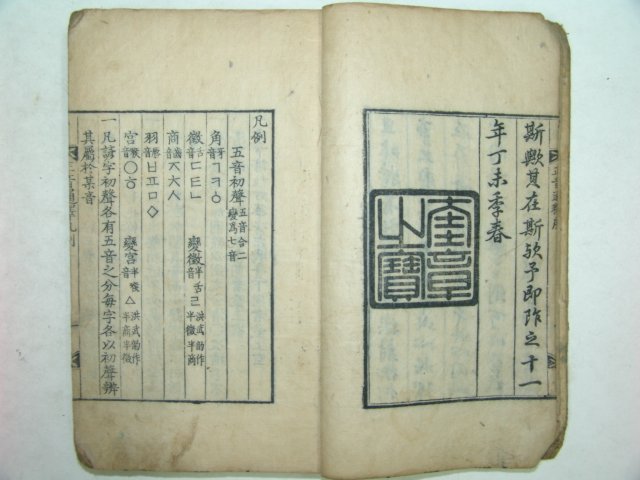 斯歟其在斯歟予卽阼之十一
年丁未季春
奎章之寶
凡例
五音初聲 五音合二變爲七音
角 牙音 ㄱㅋㆁ
徵 舌音 ㄷㅌㄴ 變徵 半舌音 ㄹ 洪武韻作半徵半商
商 齒音 ㅈㅊㅅ
羽 脣音 ㅂㅍㅁ◇
宮 喉音 ㅇㆆ 變宮 半喉音 △ 洪武韻作半商半徵
一凡諸字初聲各有五音之分每字各以初聲辨
其屬於某音